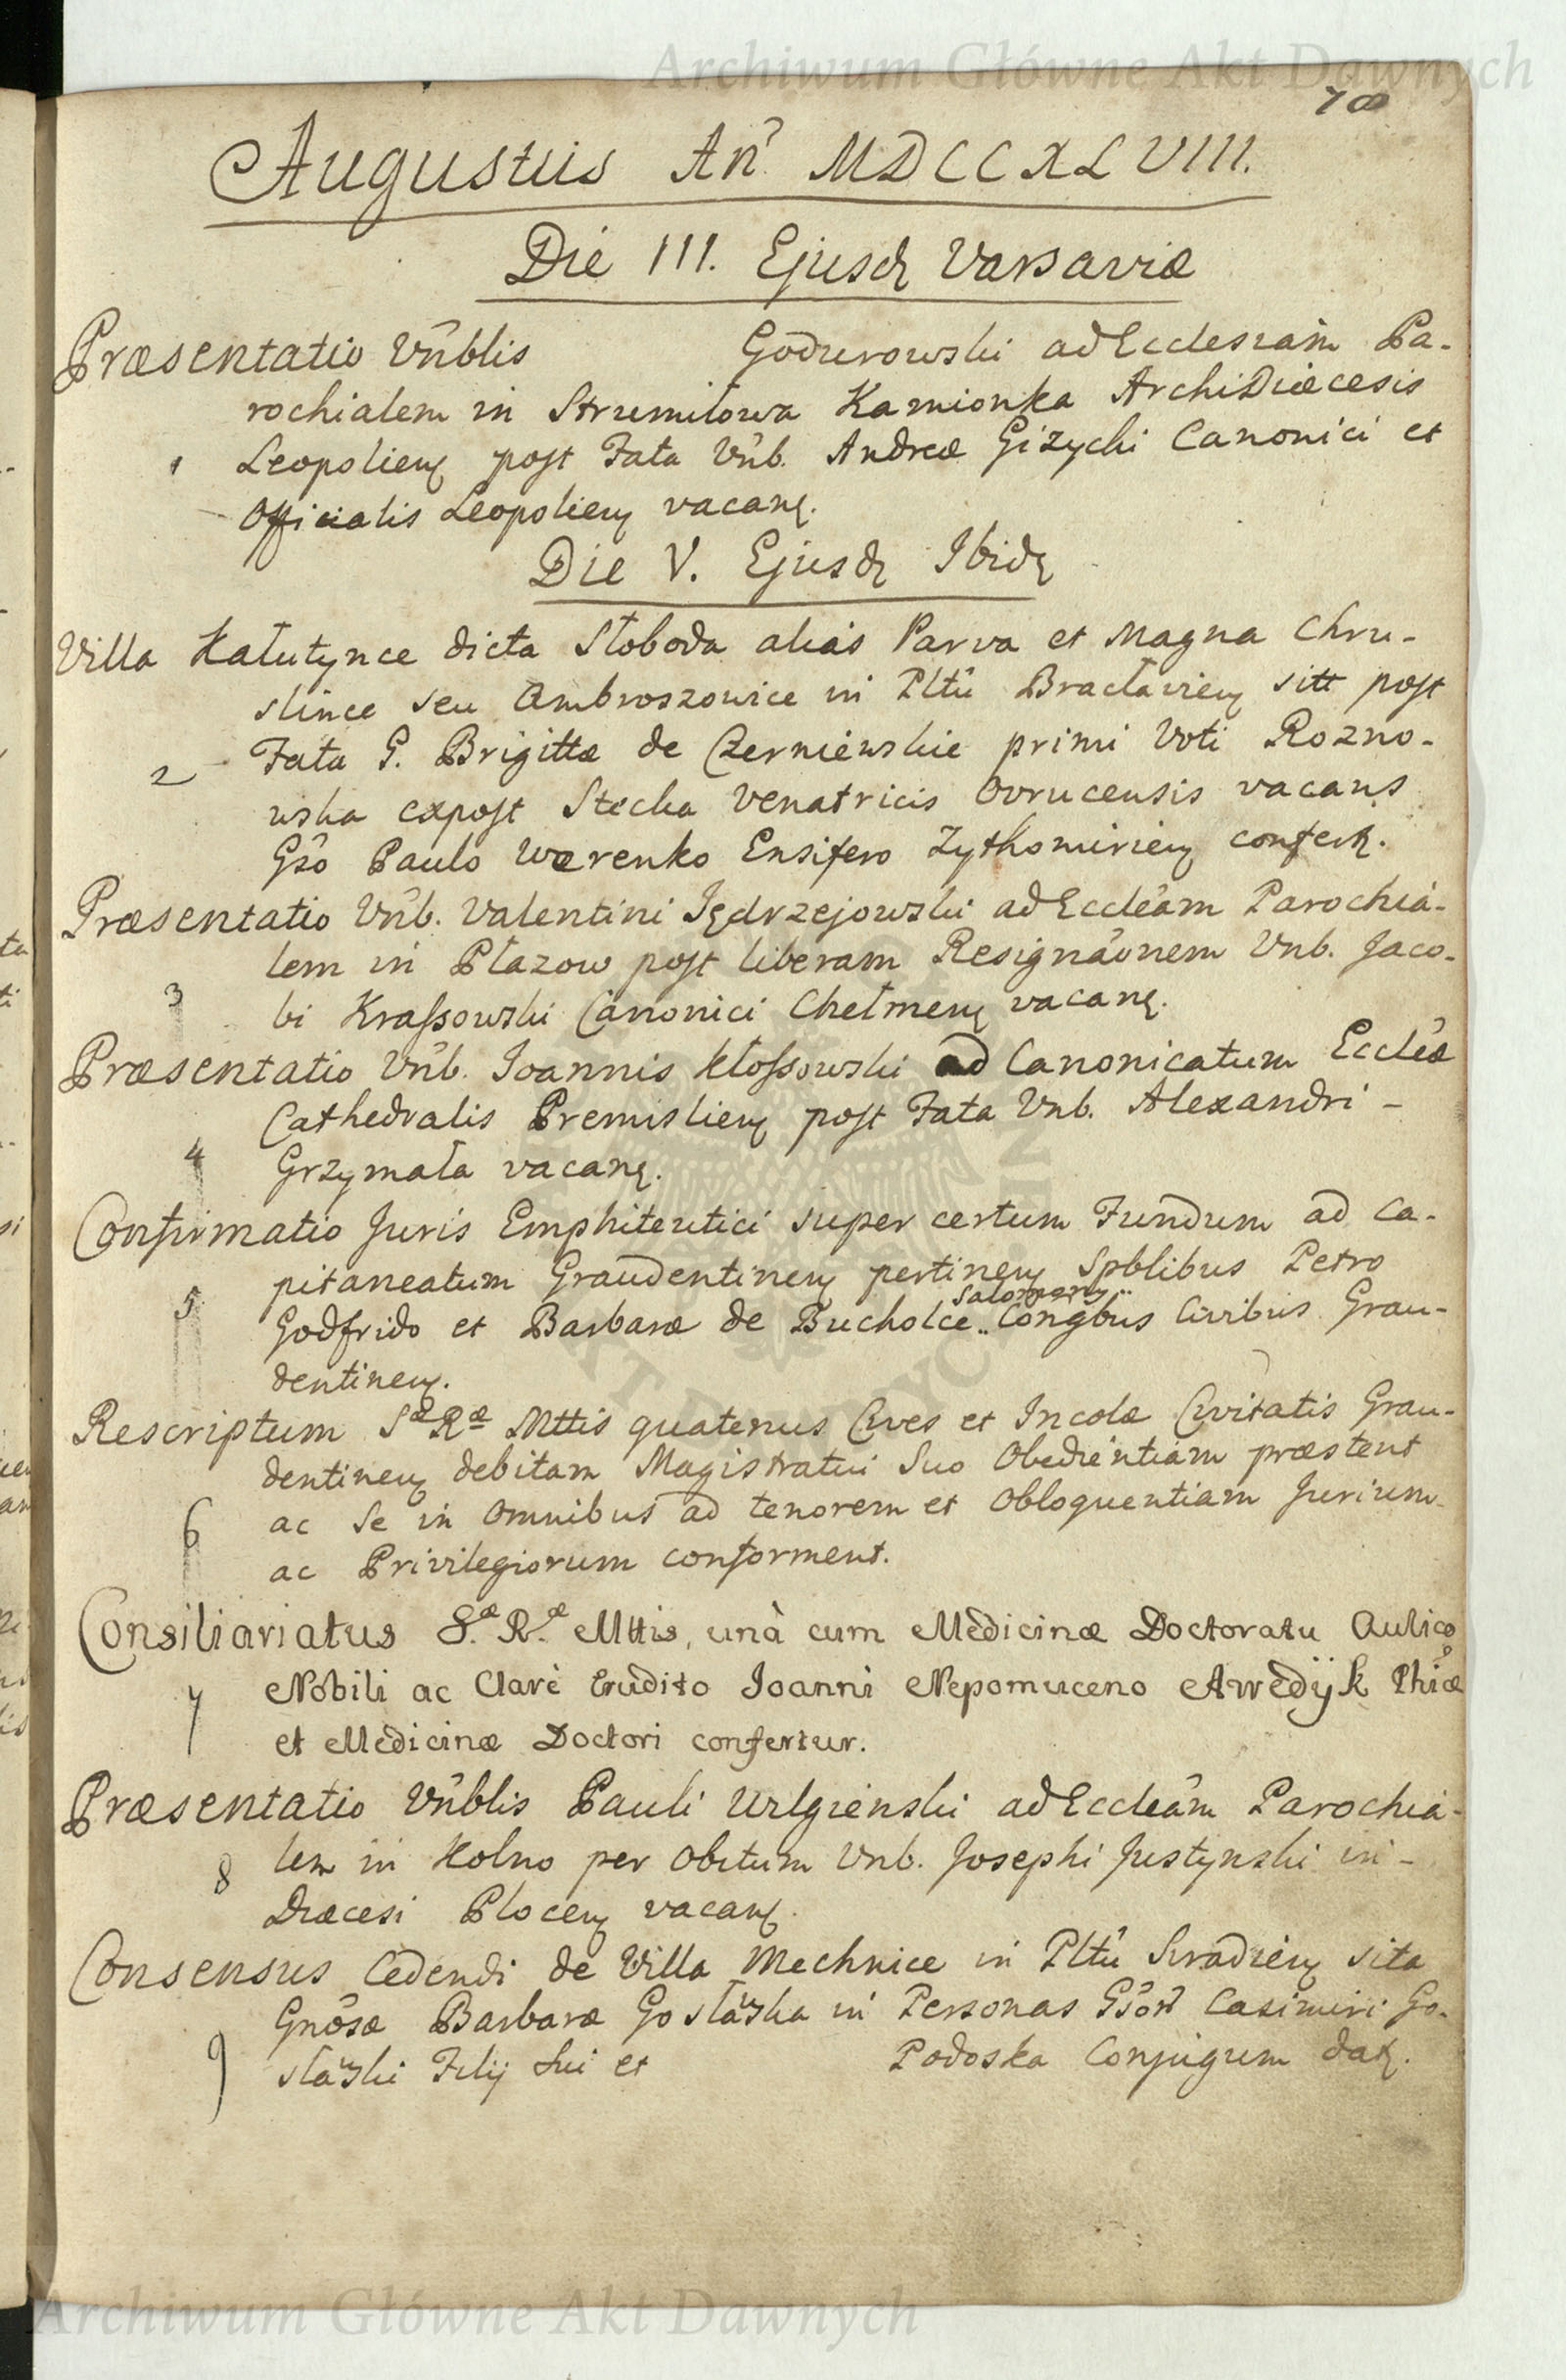 Archiwum Główne Akt Dawnych
70
Augustus An̄. MDCCXLVIII.
Die III. Ejusdꝫ Varsaviæ
Præsentatio Vn̄blis Godzurowski ad Ecclesiam Pa-
rochialem in Strumiłowa Kamionka ArchiDiæcesis
1 Leopolienꝫ post Fata Vn̄b. Andreæ Giżycki Canonici et
Officialis Leopolienꝫ vacanꝫ.
Die V. Ejusdꝫ Ibidꝫ
Villa Kałutynce dicta Słoboda alias Parva et Magna Chru-
slince seu Ambroszowice in Pltu Bracłavienꝫ sitt post
2 Fata G. Brigittæ de Czerniewskie primi Voti Rozno-
wska expost Stecka Venatricis Ovrucensis vacans
Gso Paulo Werenko Ensifero Zytkomirienꝫ confertꝫ.
Præsentatio Vn̄b. Valentini Jędrzejowski ad Eccleām Parochia-
lem in Płazow post liberam Resignāonem Vnb. Jaco-
3 bi Krassowski Canonici Chełmenꝫ vacanꝫ.
Præsentatio Vn̄b. Joannis Kłossowski ad Canonicatum Eccleæ
Cathedralis Premislienꝫ post Fata Vnb. Alexandri -
4 Grzymała vacanꝫ.
Confirmatio Juris Emphiteutici super certum Fundum ad Ca-
pitaneatum Graudentinenꝫ pertinenꝫ Spblibus Petro
Salomony
5 Godfrido et Barbaræ de Bucholce .. Congbus Civibus Grau-
dentinenꝫ.
Rescriptum Sæ Ræ Mttis quatenus Cives et Incolæ Civitatis Grau-
dentinenꝫ debitam Magistratui Suo Obedientiam præstent
6 ac Se in Omnibus ad tenorem et Obloquentiam Jurium
ac Privilegiorum conforment.
Consiliariatus S.æ R.æ Mttis, unà cum Medicinæ Doctoratu Aulico
7 Nobili ac Clarè Erudito Joanni Nepomuceno Awedÿk Phiæ
et Medicinæ Doctori confertur.
Præsentatio Vn̄blis Pauli Urlgienski ad Eccleām Parochia-
8 lem in Kolno per Obitum Vnb. Josephi Justynski in -
Diæcesi Plocenꝫ vacanꝫ.
Consensus Cedendi de Villa Mechnice in Pltu Siradienꝫ sita
Gnosæ Barbaræ Gosławska in Personas Gsor Casimiri Go-
9 sławski Filij Sui et Podoska Conjugum datꝫ.
Archiwum Główne Akt Dawnych